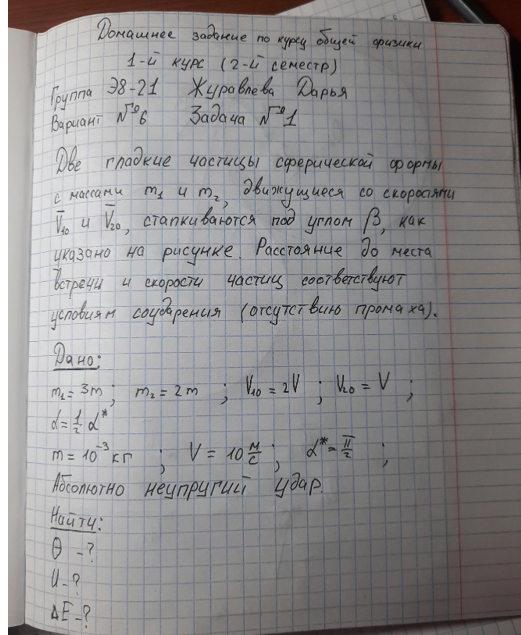 Домашнее задание по курсу общей физики
1-й курс (2-й семестр)
Группа Э8-21 Журавлева Дарья
Вариант №6 Задача №1
Две гладкие частицы сферической формы
с массами m₁ и m₂, движущиеся со скоростями
V̅₁₀ и V̅₂₀, сталкиваются под углом β, как
указано на рисунке. Расстояние до места
встречи и скорости частиц соответствуют
условиям соударения (отсутствию промаха).
Дано:
m₁ = 3m ; m₂ = 2m ; V₁₀ = 2V ; V₂₀ = V ;
α = 1/2 α*
m = 10⁻³ кг ; V = 10 м/с ; α* = π/2 ;
Абсолютно неупругий удар.
Найти:
θ - ?
U - ?
ΔE - ?